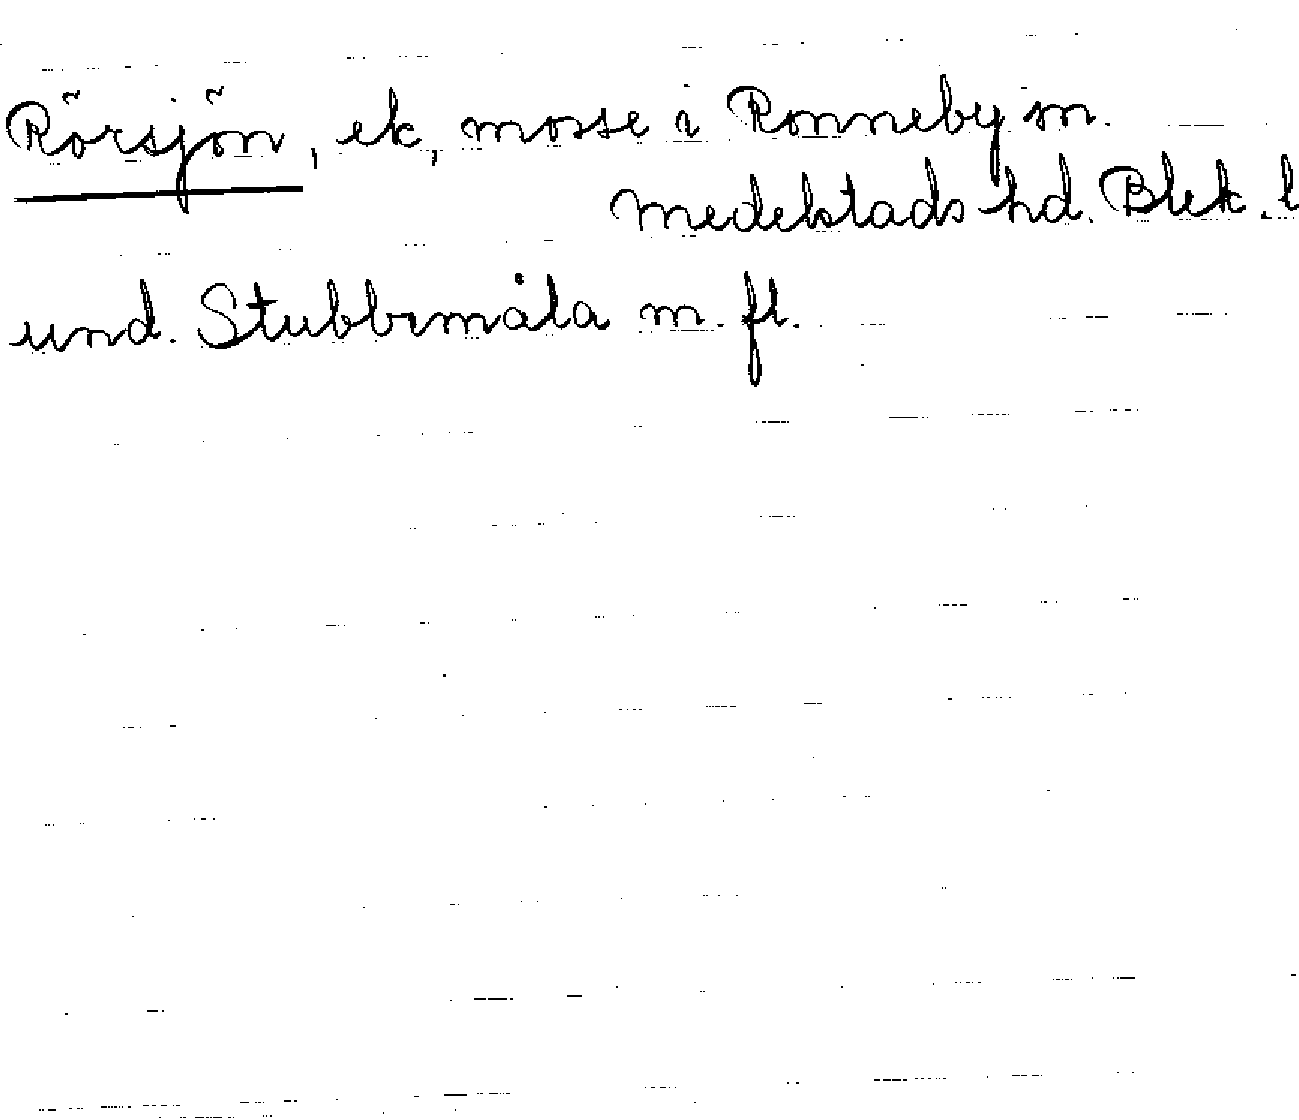 Rörsjön, ek, mosse i Ronneby sn.
Medelstads hd. Blek. l
und. Stubbemåla m. fl.